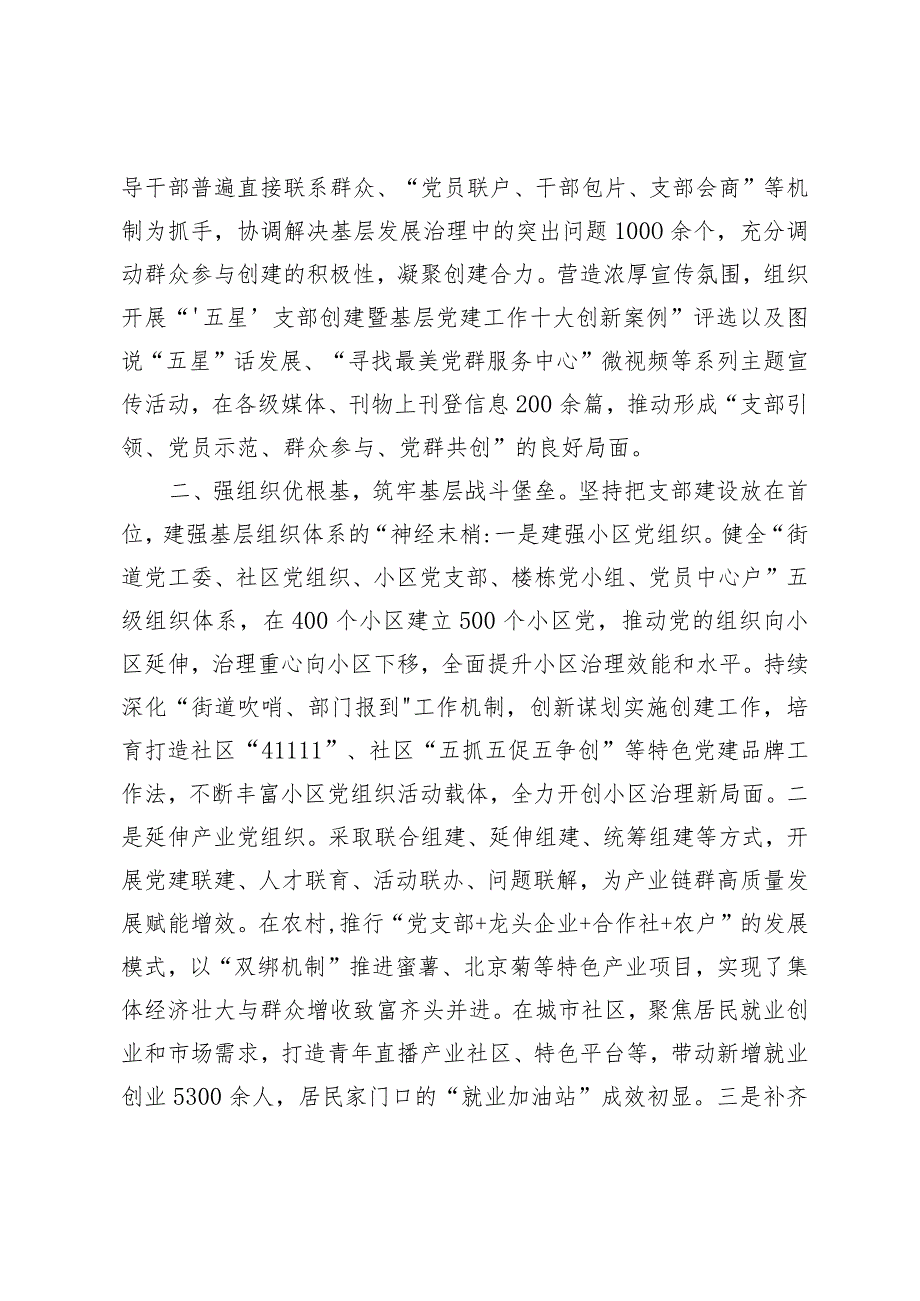 导干部普遍直接联系群众、“党员联户、干部包片、支部会商”等机
制为抓手，协调解决基层发展治理中的突出问题100O余个，充分调
动群众参与创建的积极性，凝聚创建合力。营造浓厚宣传氛围，组织
开展“'五星’支部创建暨基层党建工作十大创新案例”评选以及图
说“五星”话发展、“寻找最美党群服务中心”微视频等系列主题宣
传活动，在各级媒体、刊物上刊登信息200余篇，推动形成“支部引
领、党员示范、群众参与、党群共创”的良好局面。
二、强组织优根基，筑牢基层战斗堡垒。坚持把支部建设放在首
位，建强基层组织体系的“神经末梢:一是建强小区党组织。健全“街
道党工委、社区党组织、小区党支部、楼栋党小组、党员中心户”五
级组织体系，在400个小区建立500个小区党，推动党的组织向小
区延伸，治理重心向小区下移，全面提升小区治理效能和水平。持续
深化“街道吹哨、部门报到"工作机制，创新谋划实施创建工作，培
育打造社区“41111”、社区“五抓五促五争创”等特色党建品牌工
作法，不断丰富小区党组织活动载体，全力开创小区治理新局面。二
是延伸产业党组织。采取联合组建、延伸组建、统筹组建等方式，开
展党建联建、人才联育、活动联办、问题联解，为产业链群高质量发
展赋能增效。在农村,推行“党支部+龙头企业+合作社+农户”的发展
模式，以“双绑机制”推进蜜薯、北京菊等特色产业项目，实现了集
体经济壮大与群众增收致富齐头并进。在城市社区，聚焦居民就业创
业和市场需求，打造青年直播产业社区、特色平台等，带动新增就业
创业5300余人，居民家门口的“就业加油站”成效初显。三是补齐